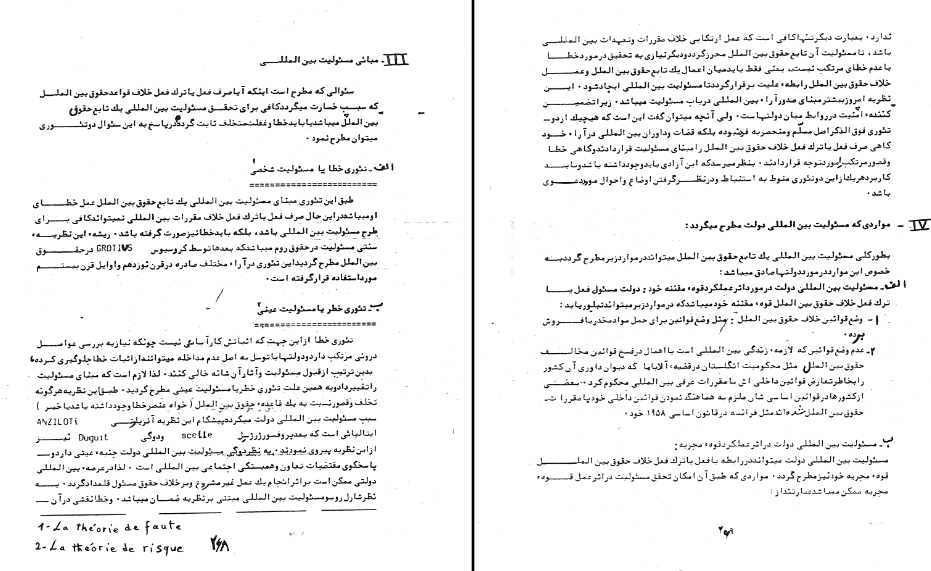 III ـ مبانی مسئولیت بین المللـــی
سئوالی که مطرح است اینکه آیا صرف فعل یا ترك فعل خلاف قواعد حقوق بین الملـل
که سبب خسارت میگردد کافی برای تحقق مسئولیت بین المللی یك تابع حقوق
بین الملل میباشد یا باید خطا و غفلت متخلف ثابت گردد در پاسخ به این سئوال دو تئـــوری
میتوان مطرح نمود ٠
الف ـ تئوری خطا یا مسئولیت شخصی ۱
طبق این تئوری مبنای مسئولیت بین المللی یك تابع حقوق بین الملل عمل خطـــای
او میباشد در این حال صرف فعل یا ترك فعل خلاف مقررات بین المللی نمیتواند کافی بـــرای
طرح مسئولیت بین المللی باشد ، بلکه باید خطا نیز صورت گرفته باشد ٠ ریشه٠ این نظریـــه٠
سنتی مسئولیت در حقوق روم میباشد که بعدها توسط کروسیوس GROTIUS در حقــــوق
بین الملل مطرح گردید این تئوری در آرا٠ مختلف صادره در قرن نوزدهم و اوایل قرن بیستـــم
مورد استفاده قرار گرفته است ٠
ب ـ تئوری خطر یا مسئولیت عینی ۲
تئوری خطا از این جهت که اثباتش کار آسانی نیست چونکه نیاز به بررسی عوامـــل
درونی مرتکب دارد و دولتها با توسل به اصل عدم مداخله میتوانند از اثبات خطا جلوگیری کرده و
بدین ترتیب از قبول مسئولیت و آثار آن شانه خالی کنند ٠ لذا لازم است که مبنای مسئولیت
را تغییر داد و به همین علت تئوری خطر یا مسئولیت عینی مطرح گردید ٠ طبق این نظریه هرگونه
تخلف و قصور نسبت به یك قاعده٠ حقوق بین الملل ( خواه عنصر خطا وجود داشته باشد یا خیر )
سبب مسئولیت بین المللی دولت میگردد پیشگام این نظریه آنزیلوتــــی ANZILOTI
ایتالیائی است که بعد پروفسور ژرژسل scelle و دوگی Duguit نیـــز
از این نظریه پیروی نمودند ٠ به نظر دوگی مسئولیت بین المللی دولت جنبه٠ عینی دارد و ـ
پاسخگوی مقتضیات تعاون و همبستگی اجتماعی بین المللی است ٠ لذا در عرصه٠ بین المللی
دولتی ممکن است بر اثر انجام یك عمل غیر مشروع و بر خلاف حقوق مسئول قلمداد گردد ٠ بـــه
نظر شارل روسو مسئولیت بین المللی مبتنی بر نظریه ضمـان میباشد ٠ و خطا نقشی در آن ـ
1- La théorie de faute
2- La théorie de risque
۲۶۸
ندارد ٠ بعبارت دیگر تنها کافی است که عمل ارتکابی خلاف مقررات و تعهدات بین المللـــی
باشد ، تا مسئولیت آن تابع حقوق بین الملل محرز گردد و دیگر نیازی به تحقیق در مورد خطـا
یا عدم خطای مرتکب نیست ، یعنی فقط باید میان اعمال یك تابع حقوق بین الملل و عمـــل
خلاف حقوق بین الملل رابطه٠ علیت برقرار گردد تا مسئولیت بین المللی ایجاد شود ٠ ایـــن
نظریه امروز بیشتر مبنای صدور آرا٠ بین المللی در باب مسئولیت میباشد ٠ زیرا تضمیــــن
کننده٠ امنیت در روابط میان دولتهاست ٠ ولی آنچه میتوان گفت این است که هیچیك از دو ـ
تئوری فوق الذکر اصل مسلم و منحصر به فرد نبوده بلکه قضات و داوران بین المللی در آرا٠ خـود
گاهی صرف فعل یا ترك فعل خلاف حقوق بین الملل را مبنای مسئولیت قرار دادند و گاهی خطا
و قصور مرتکب را مورد توجه قرار دادند ٠ بنظر میرسد که این آزادی باید وجود داشته باشد و با یـد
کاربرد هریك از این دو تئوری منوط به استنباط و در نظــر گرفتن اوضاع و احوال مورد دعـــوی
باشد ٠
IV ـ مواردی که مسئولیت بین المللی دولت مطرح میگردد :
بطور کلی مسئولیت بین المللی یك تابع حقوق بین المللی میتواند در موارد زیر مطرح گردد بـــه
خصوص این موارد در مورد دولتها صادق میباشد :
الف ـ مسئولیت بین المللی دولت در مورد اثر عملکرد قوه٠ مقننه خود : دولت مسئول فعل یـــا
ترك فعل خلاف حقوق بین الملل قوه٠ مقننه خود میباشد که در موارد زیر میتواند تبلور یابد :
۱ـ وضع قوانین خلاف حقوق بین الملل : مثل وضع قوانین برای حمل مواد مخدر یا فـــروش
برده ٠
۲ـ عدم وضع قوانین که لازمه٠ زندگی بین المللی است یا اهمال در فسخ قوانین مخالـــف
حقوق بین الملل مثل محکومیت انگلستان در قضیه٠ آلاباما که دیوان داوری آن کشور
را بخاطر تعارض قوانین داخلی اش با مقررات عرفی بین المللی محکوم کرد ٠ بعضـــی
از کشورها در قوانین اساسی شان ملزم به هماهنگ نمودن قوانین داخلی خود با مقررا ت ـ
حقوق بین الملل شده اند مثل فرانسه در قانون اساسی ۱۹۵۸ خود ٠
ب ـ مسئولیت بین المللی دولت در اثر عملکرد قوه٠ مجریه :
مسئولیت بین المللی دولت میتواند در رابطه با فعل یا ترك فعل خلاف حقوق بین الملــــل
قوه٠ مجریه خود نیز مطرح گردد ٠ مواردی که طبق آن امکان تحقق مسئولیت در اثر عمل قـــوه٠
مجریه ممکن میباشد عبارتند از :
۲۶۹